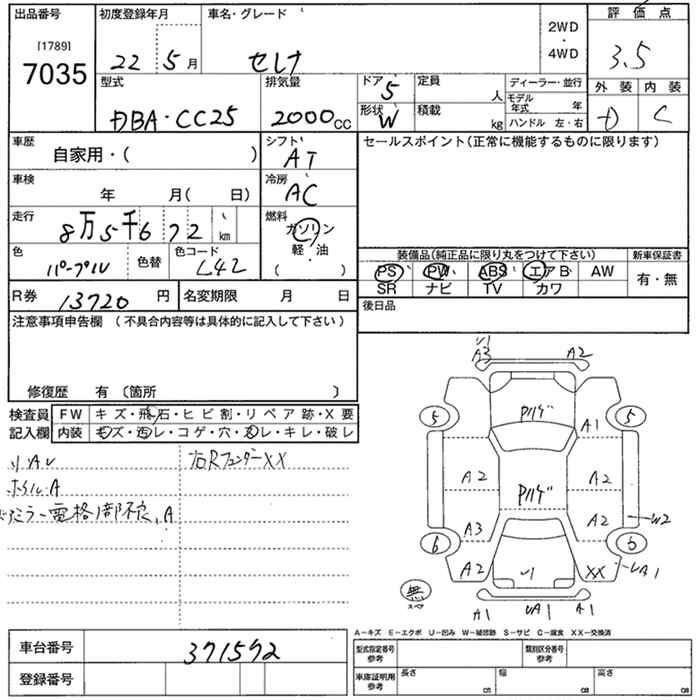 出品番号
[1789]
7035
初度登録年月
22 5月
車名・グレード
セレナ
2WD
・
4WD
評価点
3.5
外装 内装
D C
型式
DBA・CC25
排気量
2000cc
ドア
5
定員
人
形状
W
積載
kg
ディーラー・並行
モデル年式 年
ハンドル 左・右
車歴
自家用・( )
シフト
AT
セールスポイント(正常に機能するものに限ります)
車検
年 月( 日)
冷房
AC
走行
8万5千672 km
燃料
ガソリン
・
軽・油
( )
色
パープル
色替
色コード
L42
装備品(純正品に限り丸をつけて下さい)
PS PW ABS エアB AW
SR ナビ TV カワ
新車保証書
有・無
R券
13720円
名変期限 月 日
後日品
注意事項申告欄(不具合内容等は具体的に記入して下さい)
修復歴 有〔箇所 〕
検査員記入欄
FW キズ・飛石・ヒビ割・リペア跡・X要
内装 キズ・汚レ・コゲ・穴・スレ・キレ・破レ
ホイルA
右RフェンダーXX
ミラー電格1部不良、A
A3 A2
5 5
A1
A2 A2
A2
W2
A3
6 6
A2
XX
UA1
無
スペア
A1 UA1 A1
A−キズ E−エクボ U−凹み W−補修跡 S−サビ C−腐食 XX−交換済
車台番号
371572
登録番号
型式指定番号
参考
類別区分番号
参考
車庫証明用
参考
長さ cm
幅 cm
高さ cm